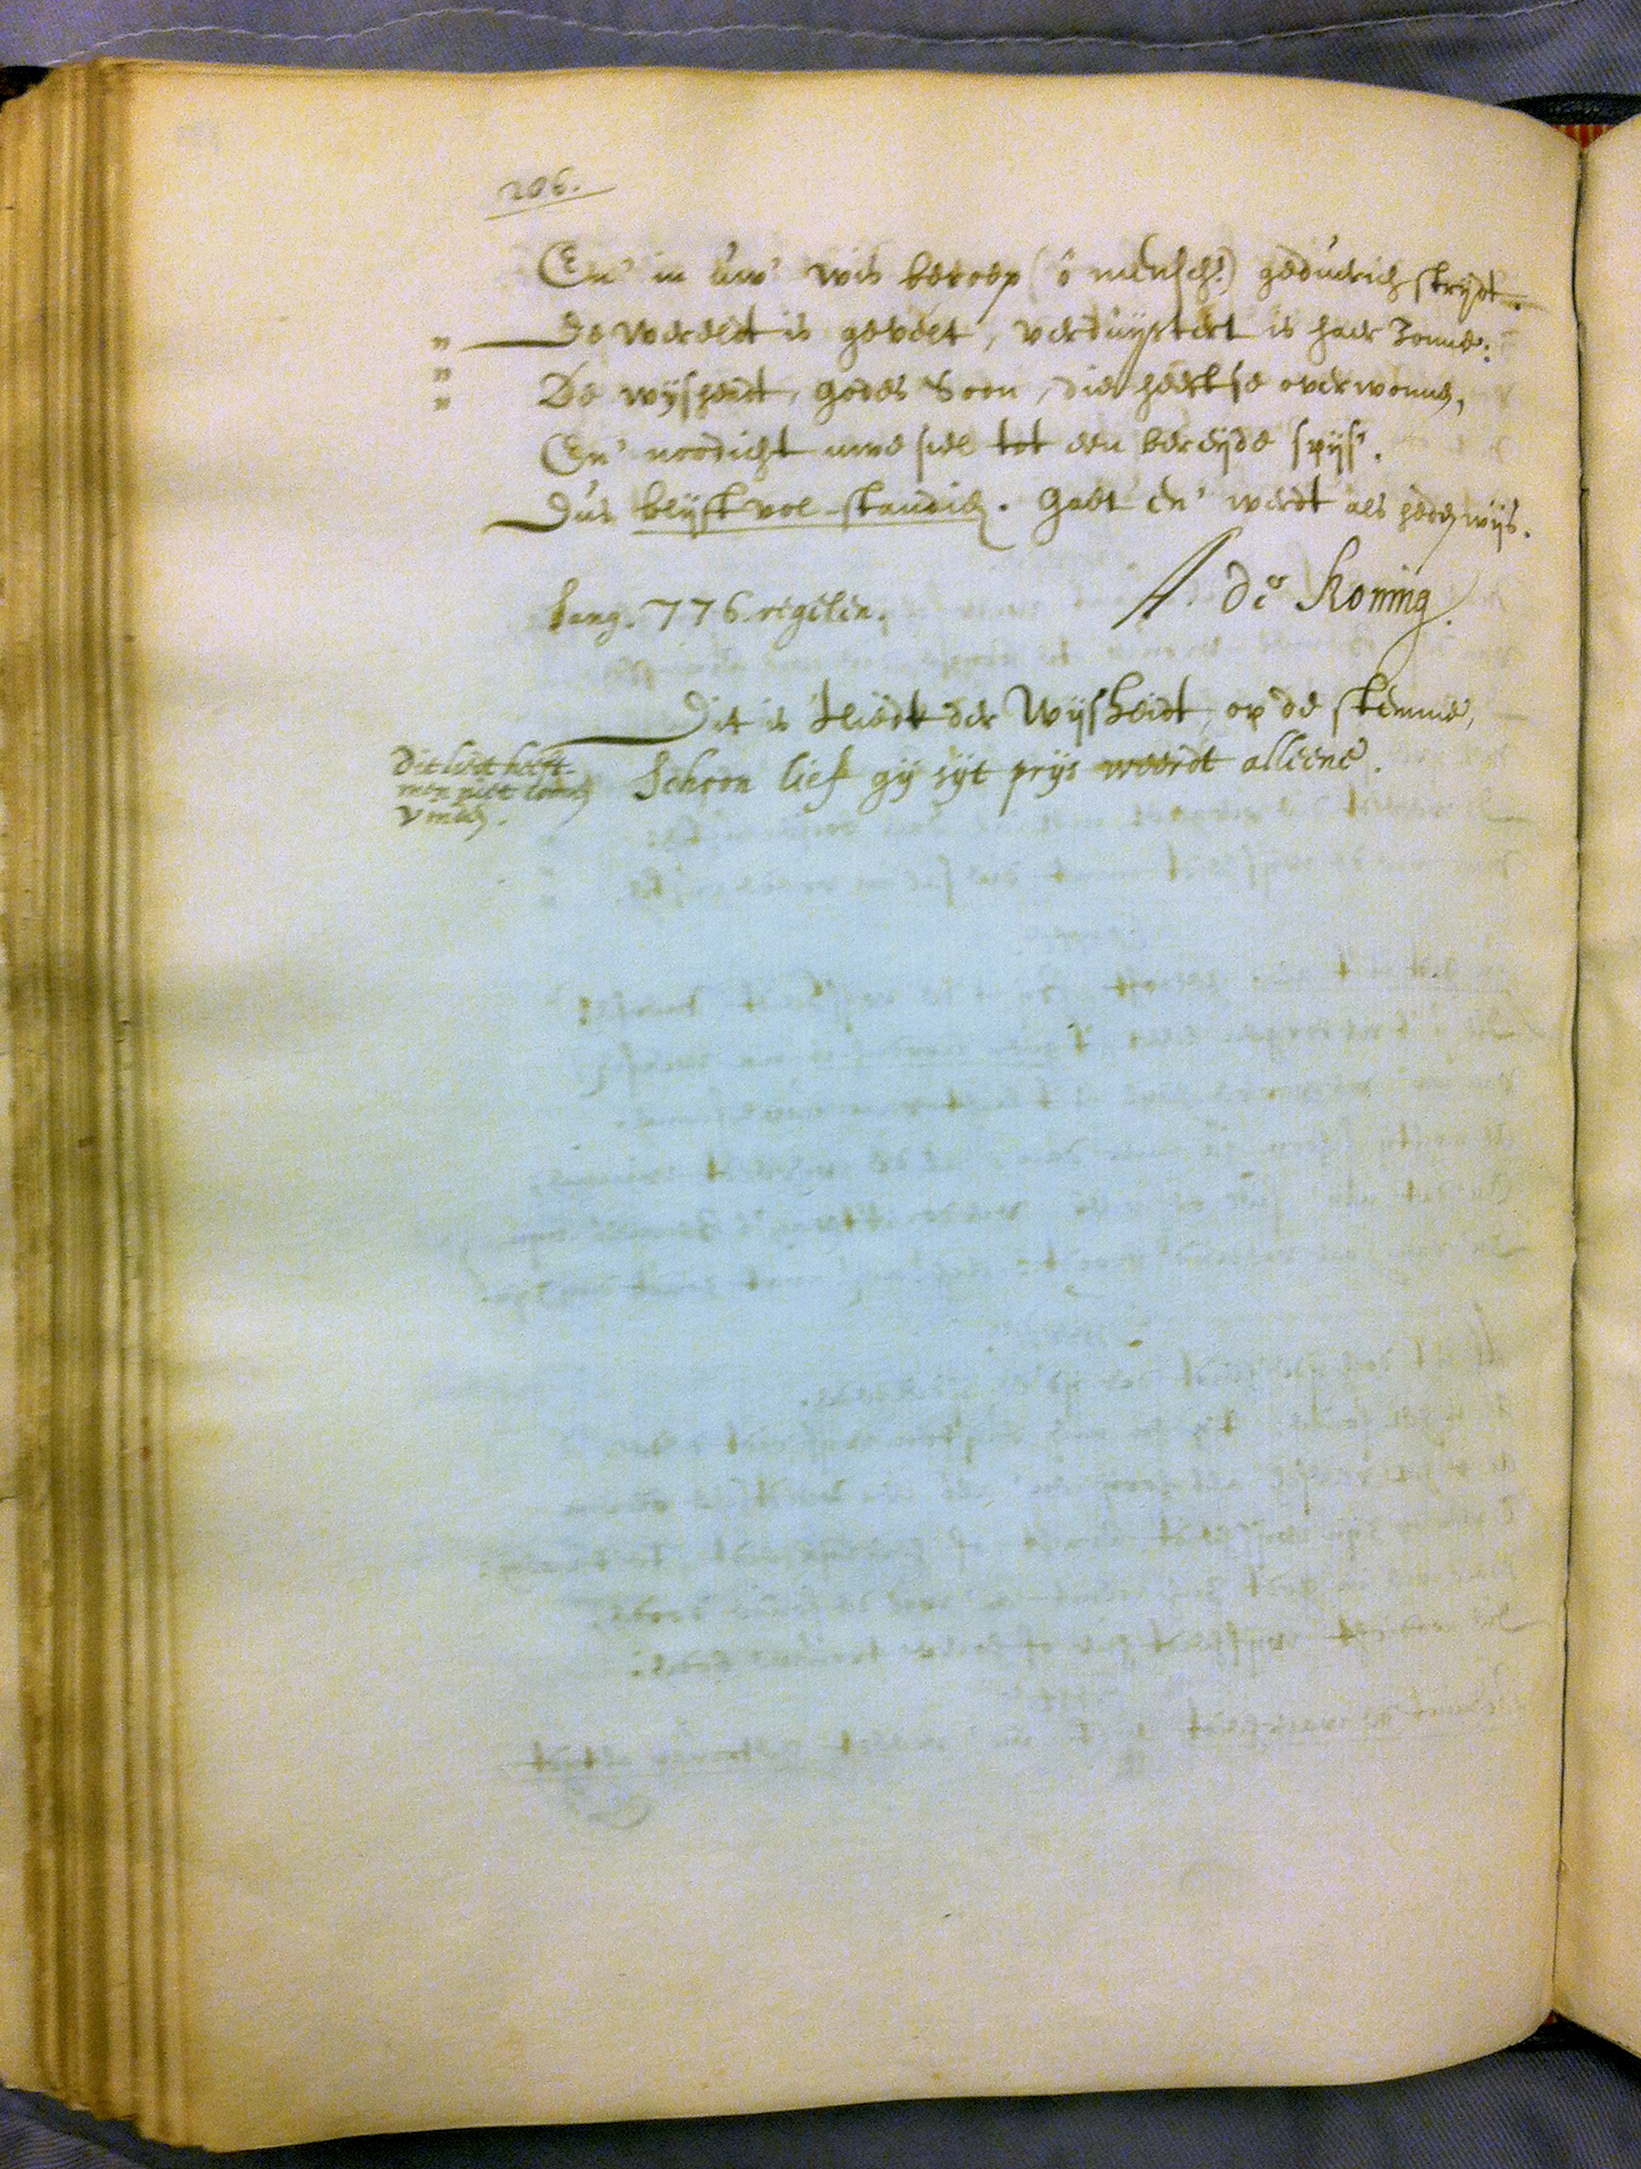 206.
En' in uw' wis beroep (ô mensch!) geduerich strijdt.
" De Wereldt is gevelt, verduijstert is haer Zonne:
" De wijsheidt, Godes Soon, die heeftse overwonnen,
" En' noodicht uwe siel tot een bereijde spijs'.
Dus blijft vol-standich. Gaet en' werdt als heden wijs.
Lang. 776. regelen.
A. de Koning.
Dit is t'liedt der Wijsheidt, op de stemme,
Schoon lief gij sijt prijs weerdt alleene.
Dit liedt heeft
men niet